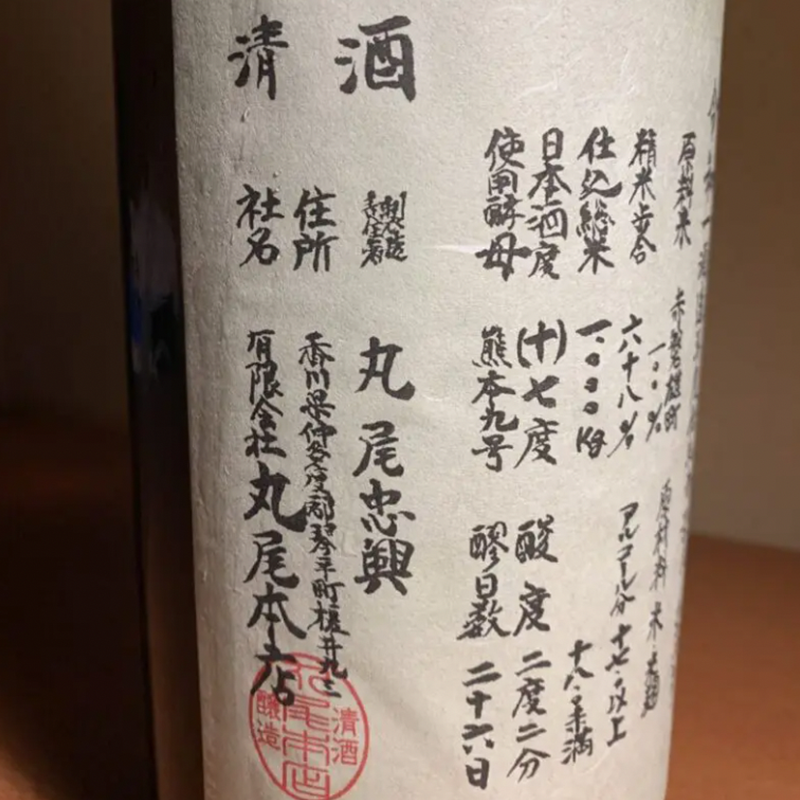 原料米 赤磐雄町 一〇〇% 原材料 米・米麹
精米歩合 六十八% アルコール分 十七・以上
十八・未満
仕込総米 一.〇〇〇Kg
日本酒度 (十)七度 酸度 二度二分
使用酵母 熊本九号 醪日数 二十六日
清酒
製造責任者 丸尾忠興
住所 香川県仲多度郡琴平町榎井九三
社名 有限会社丸尾本店
清酒
丸尾本店
醸造